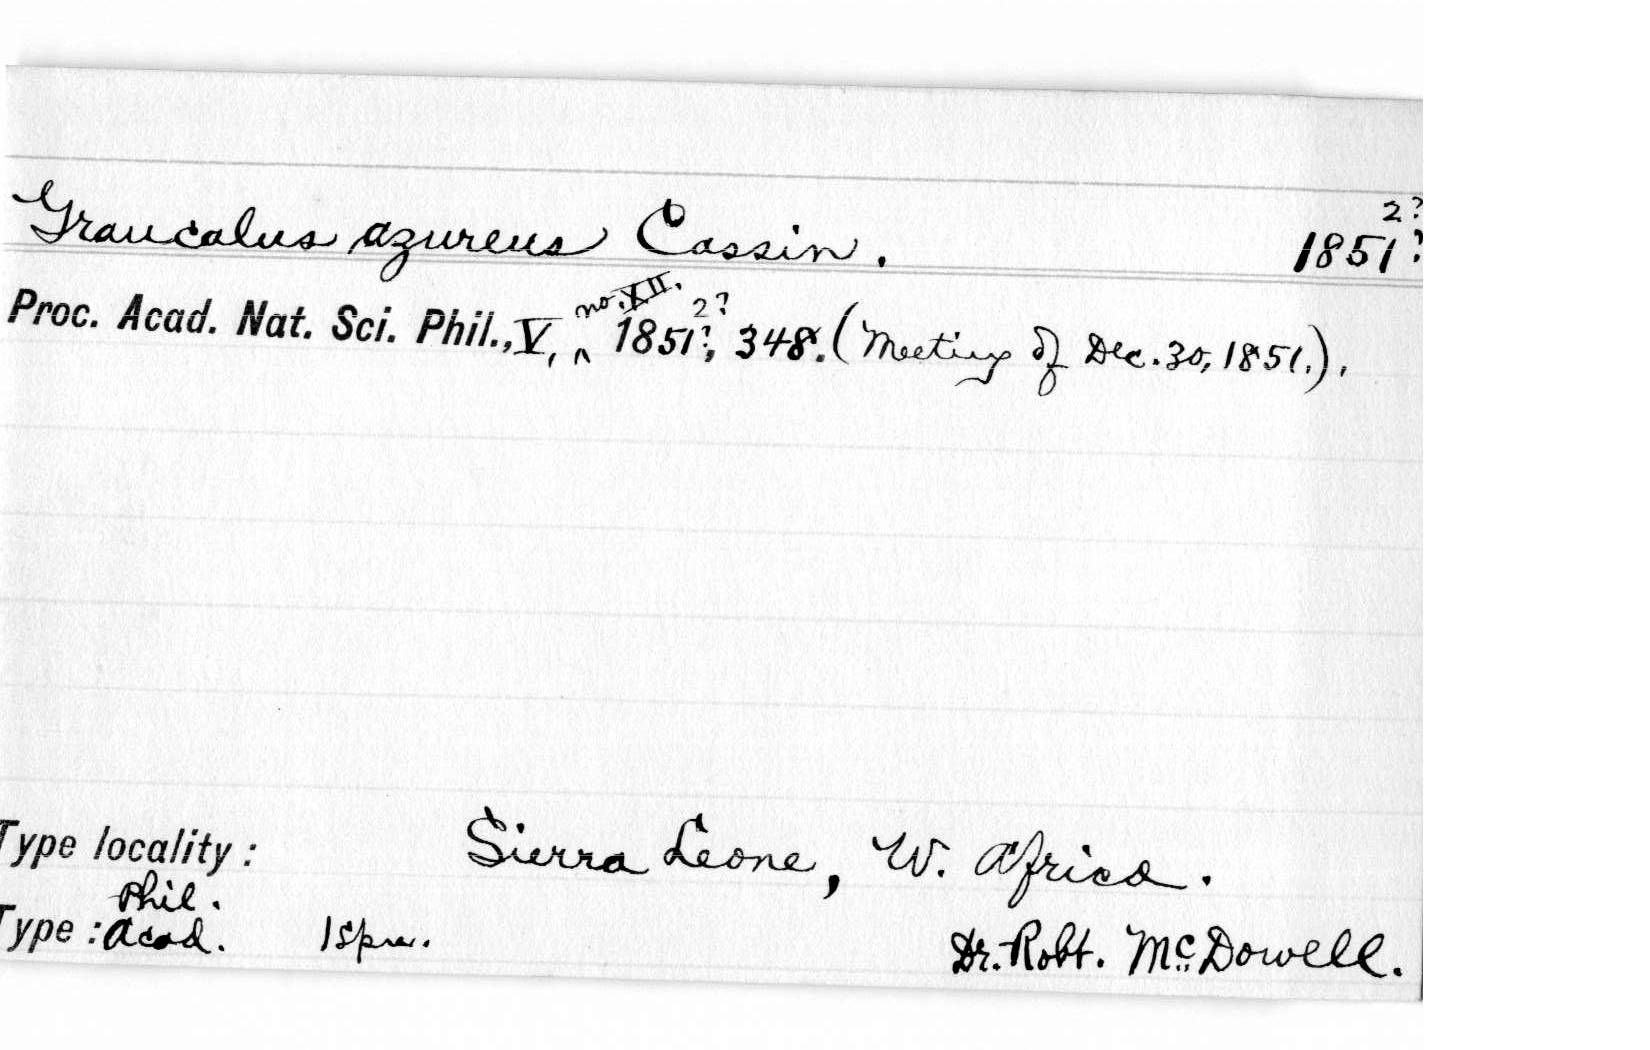 Graucalus azureus Cassin. 1851?
2?
Proc. Acad. Nat. Sci. Phil., V, no. XII. 1851?, 2? 348. (Meeting of Dec. 30, 1851.).
Type locality: Sierra Leone, W. Africa.
Phil.
Type: Acad. 1 spm. Dr. Robt. McDowell.